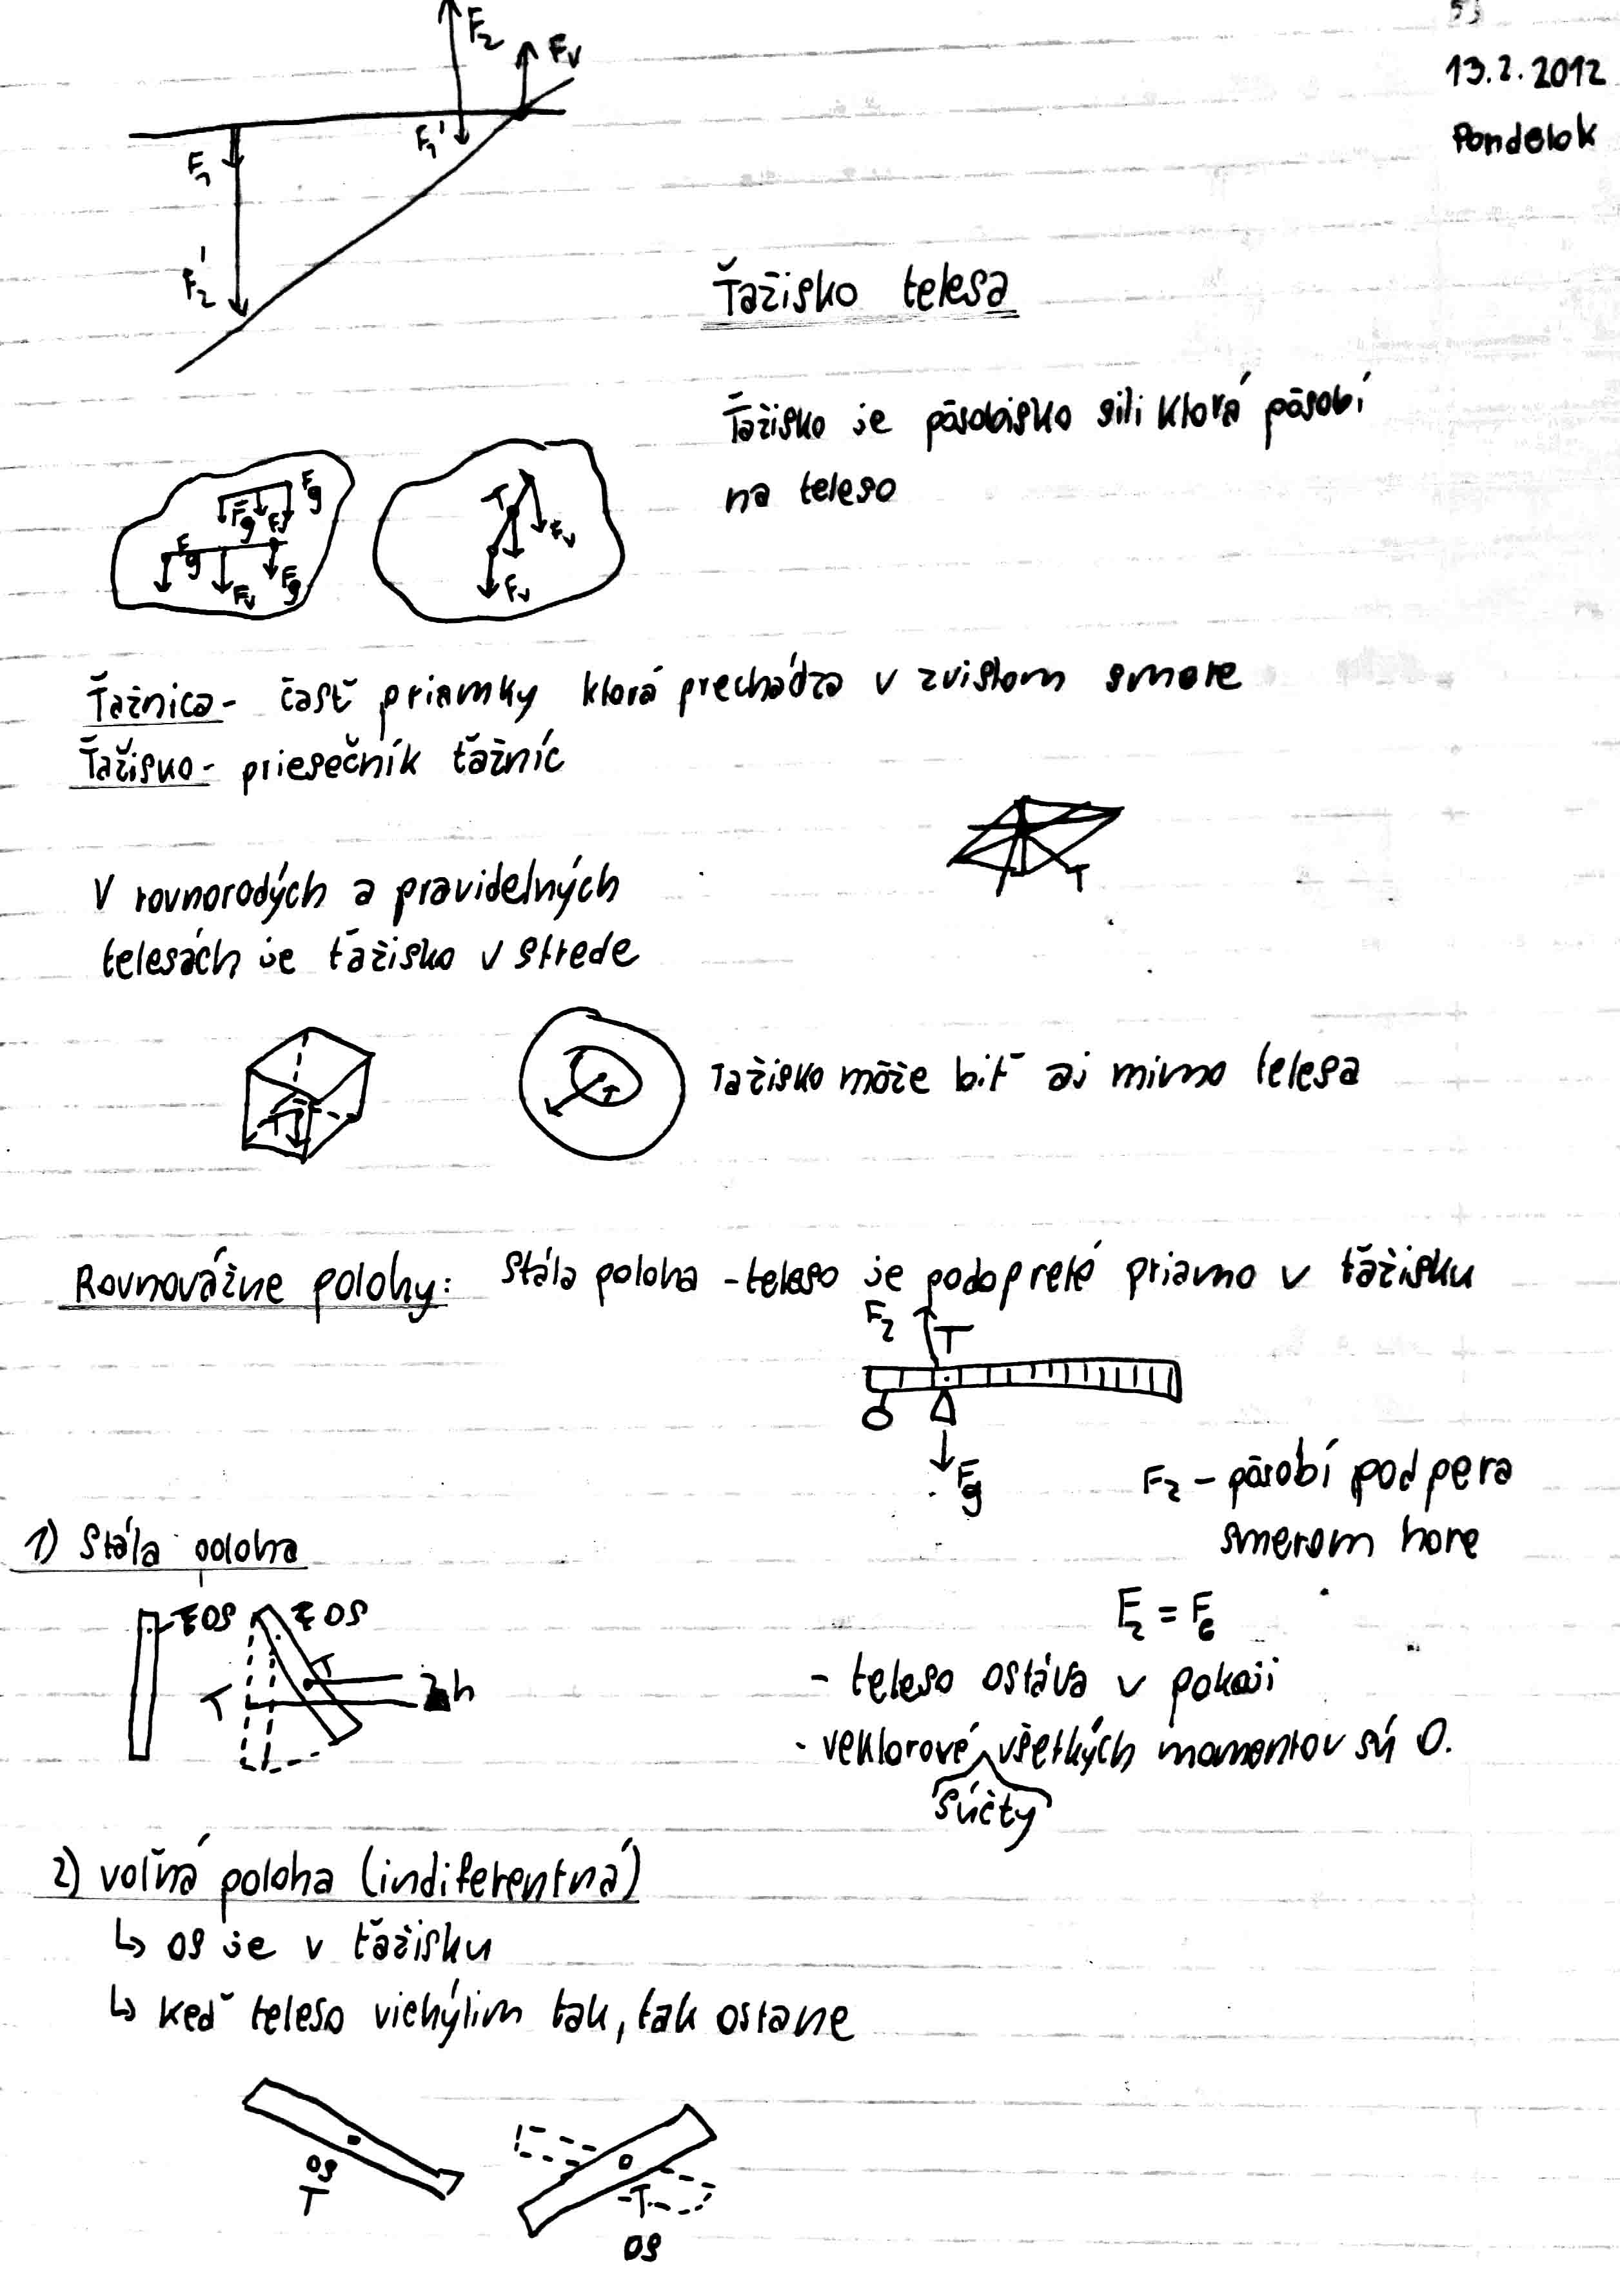 53
13.2.2012
Pondelok
F2
Fv
F1
F1'
F2'
Ťažisko telesa
Ťažisko je pôsobisko sili ktorá pôsobí
na teleso
Fg
Fg Fv
Fg
Fv
Fg
T
Fv
Fv
Ťažnica - časť priamky ktorá prechádza v zvislom smere
Ťažisko - priesečník ťažníc
T
V rovnorodých a pravidelných
telesách je ťažisko v strede
T
T
Tažisko môže biť aj mimo telesa
Rovnovážne polohy: Stála poloha - teleso je podopreté priamo v ťažisku
F2
T
Fg
F2 - pôsobí podpera
smerom hore
1) Stála poloha
OS
OS
T
T
h
F2 = FG
- teleso ostáva v pokoji
- vektorové všetkých momentov sú 0.
súčty
2) voľná poloha (indiferentná)
↳ os je v ťažisku
↳ keď teleso vichýlim tak, tak ostane
os
T
T
os